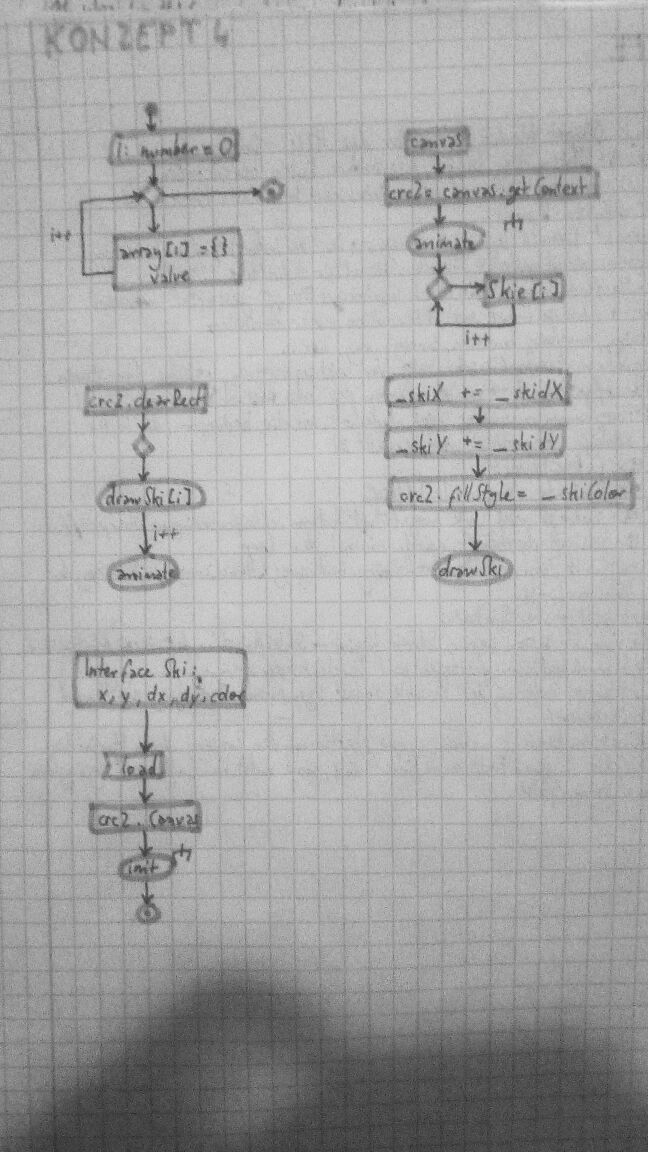 KONZEPT 4
i: number = 0
i++
array[i] = {}
value
canvas
crc2 = canvas.getContext
animate
Skie[i]
i++
crc2.clearRect
drawSki[i]
i++
animate
_skiX += _skidX
_skiY += _skidY
crc2.fillStyle = _skiColor
drawSki
Interface Ski:
x, y, dx, dy, color
load
crc2.Canvas
init